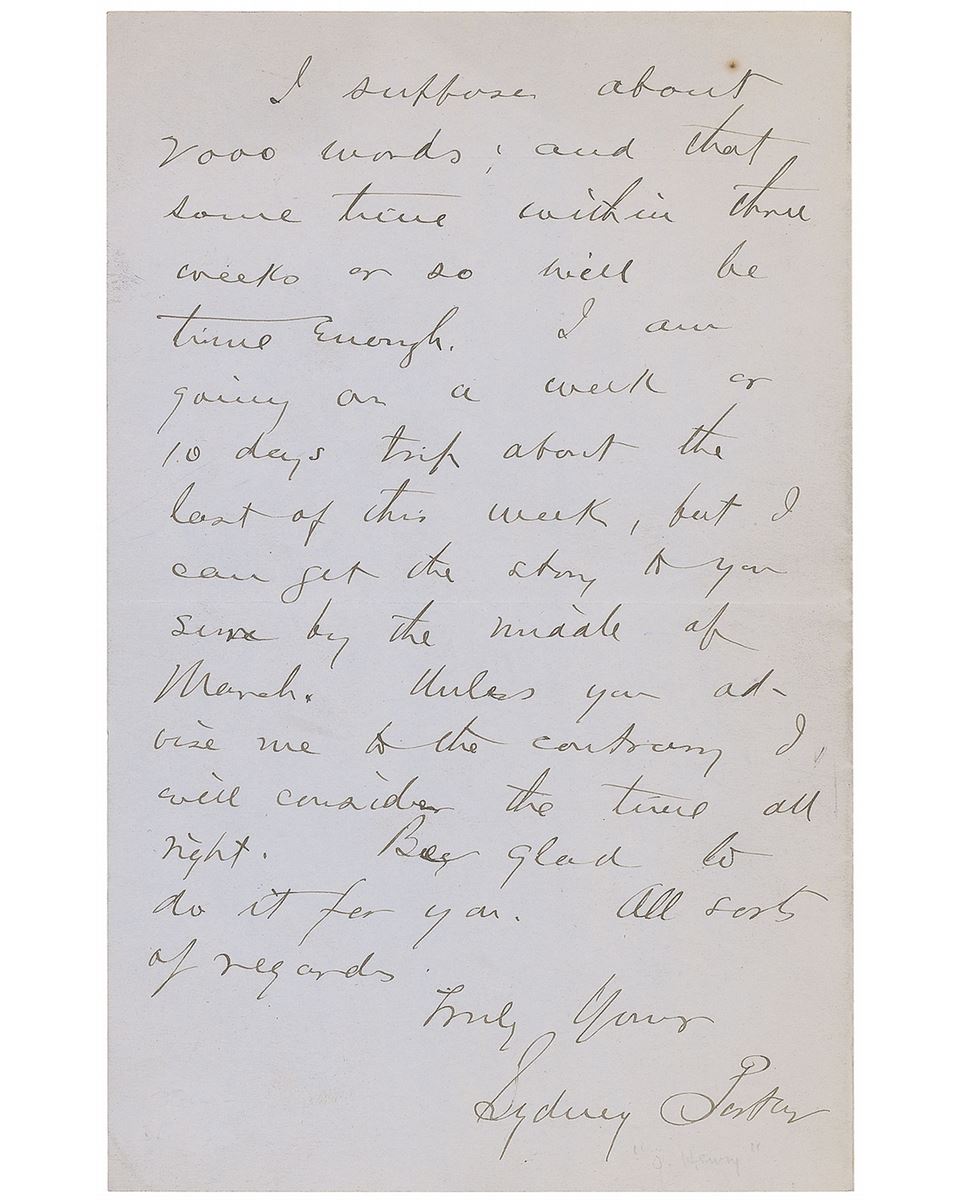 I suppose about
2000 words; and that
some time within three
weeks or so will be
time enough. I am
going on a week or
10 days trip about the
last of this week, but I
can get the story to you
sure by the middle of
March. Unless you ad-
vise me to the contrary I
will consider the time all
right. glad to
do it for you. All sorts
of regards
Truly Yours
Sydney Porter
"O. Henry"